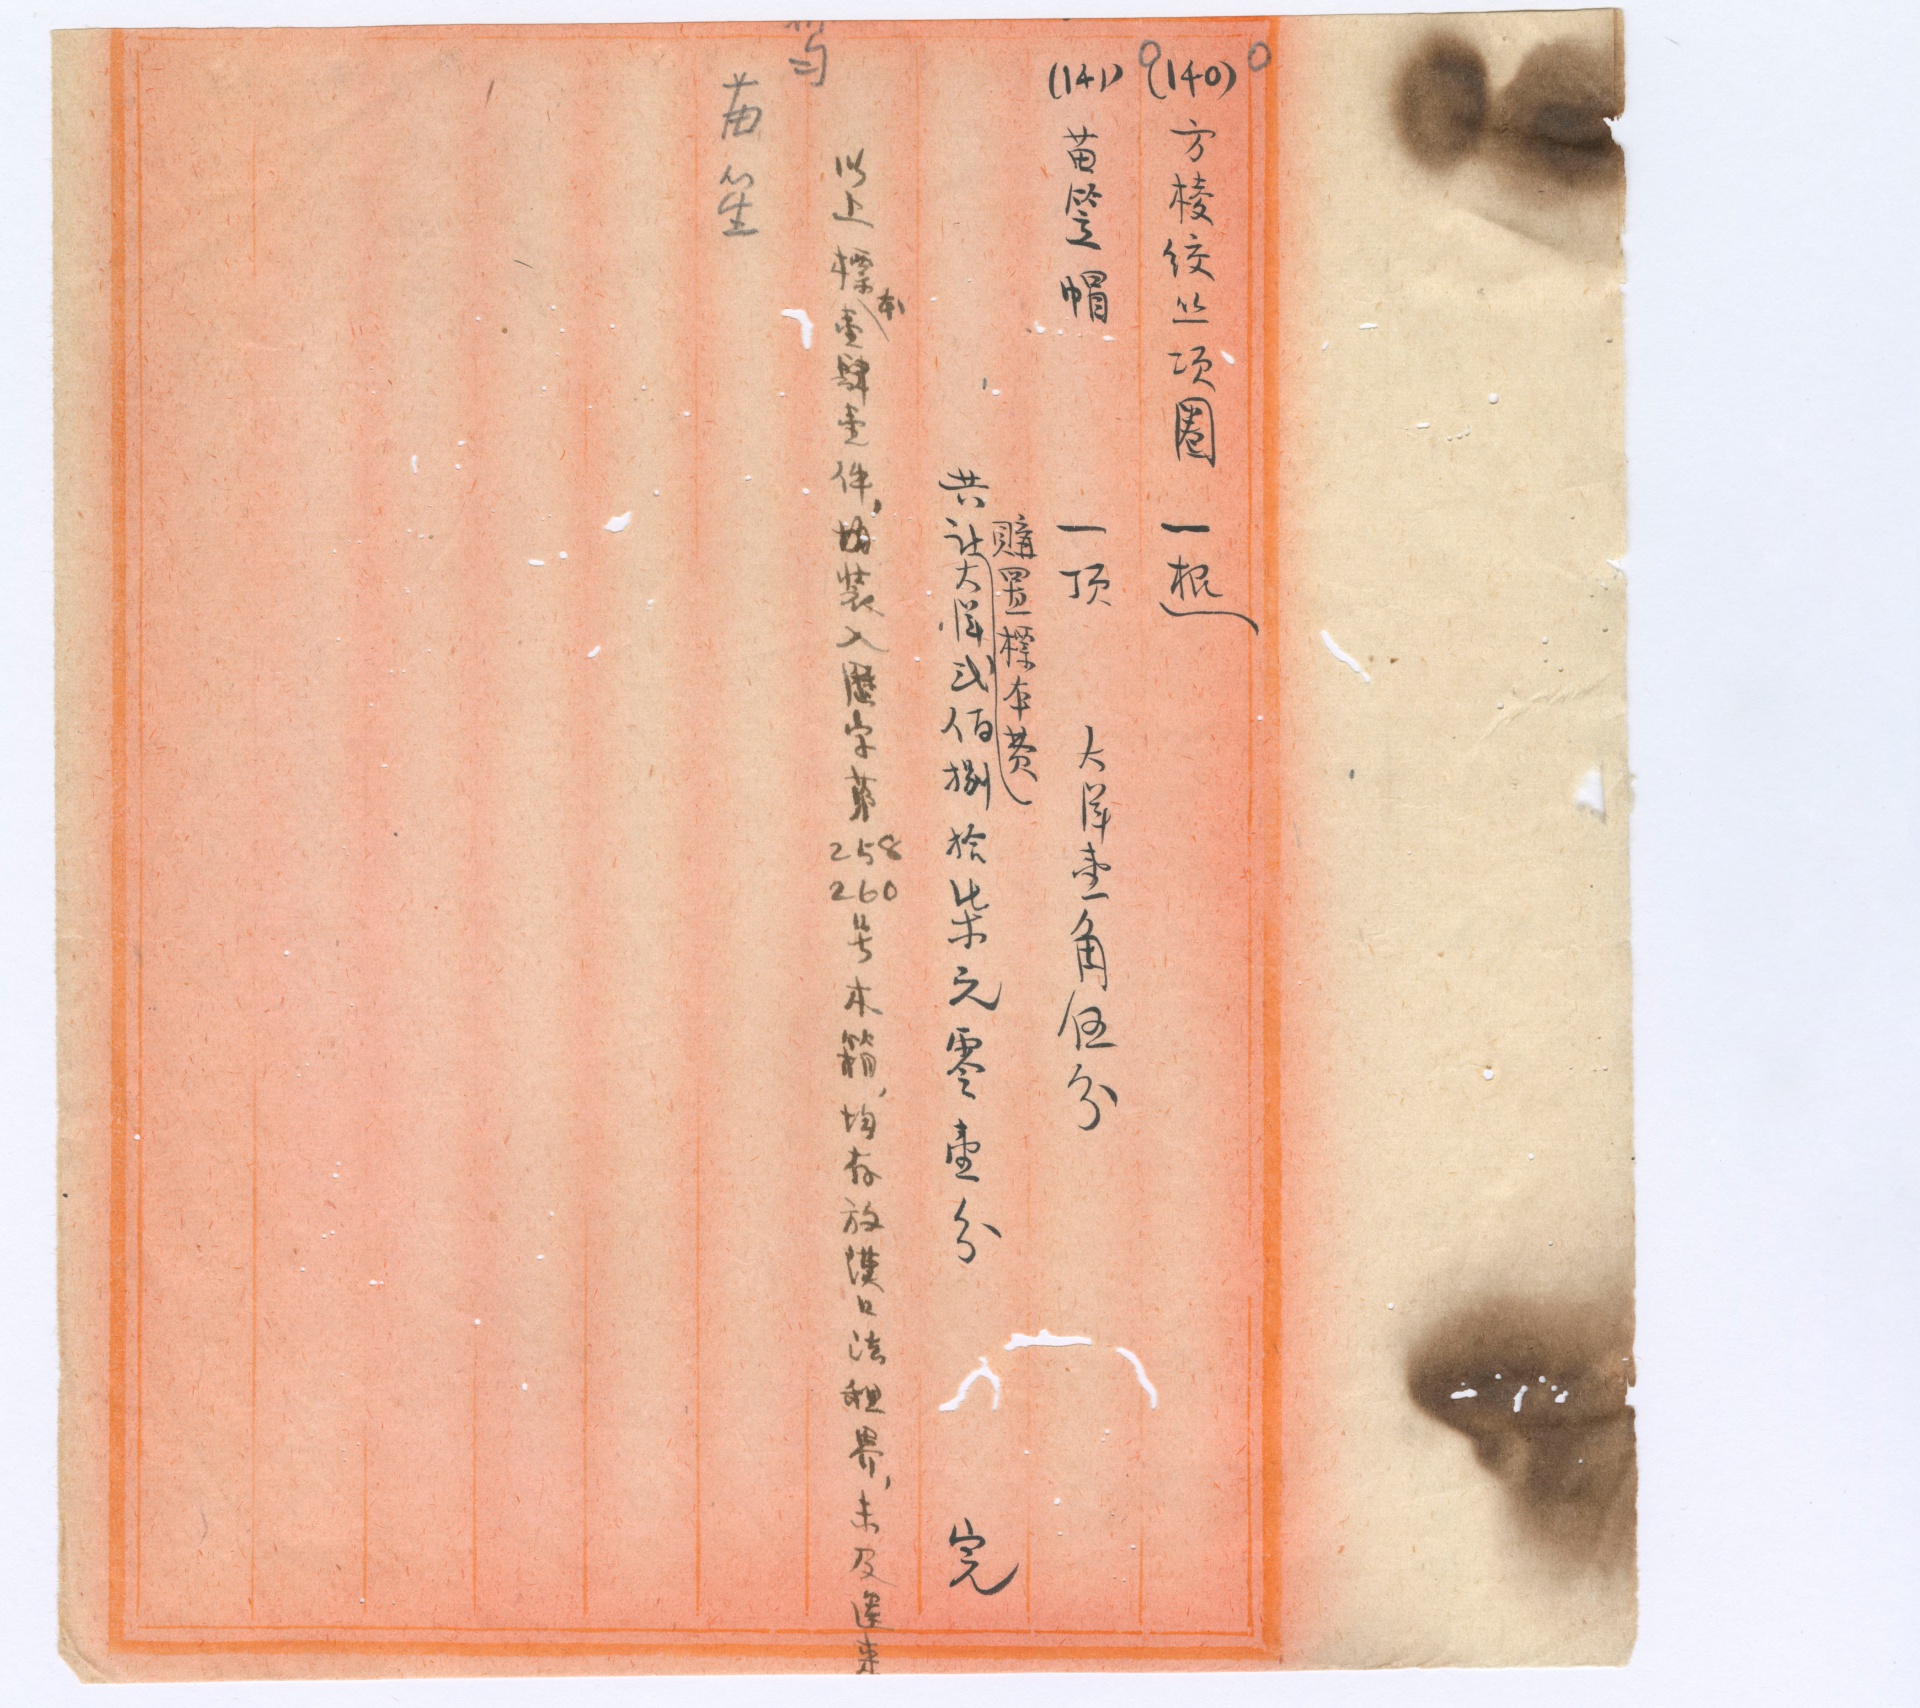 (140) 方棱绞丝项圈 一根
(141) 苗笠帽 一顶 大洋壹角伍分
購置標本费
共计大洋弍佰捌拾柒元零壹分 完
以上標本壹肆壹件,均装入歷字第258 260号木箱,均存放漢口法租界,未及運来
苗笙